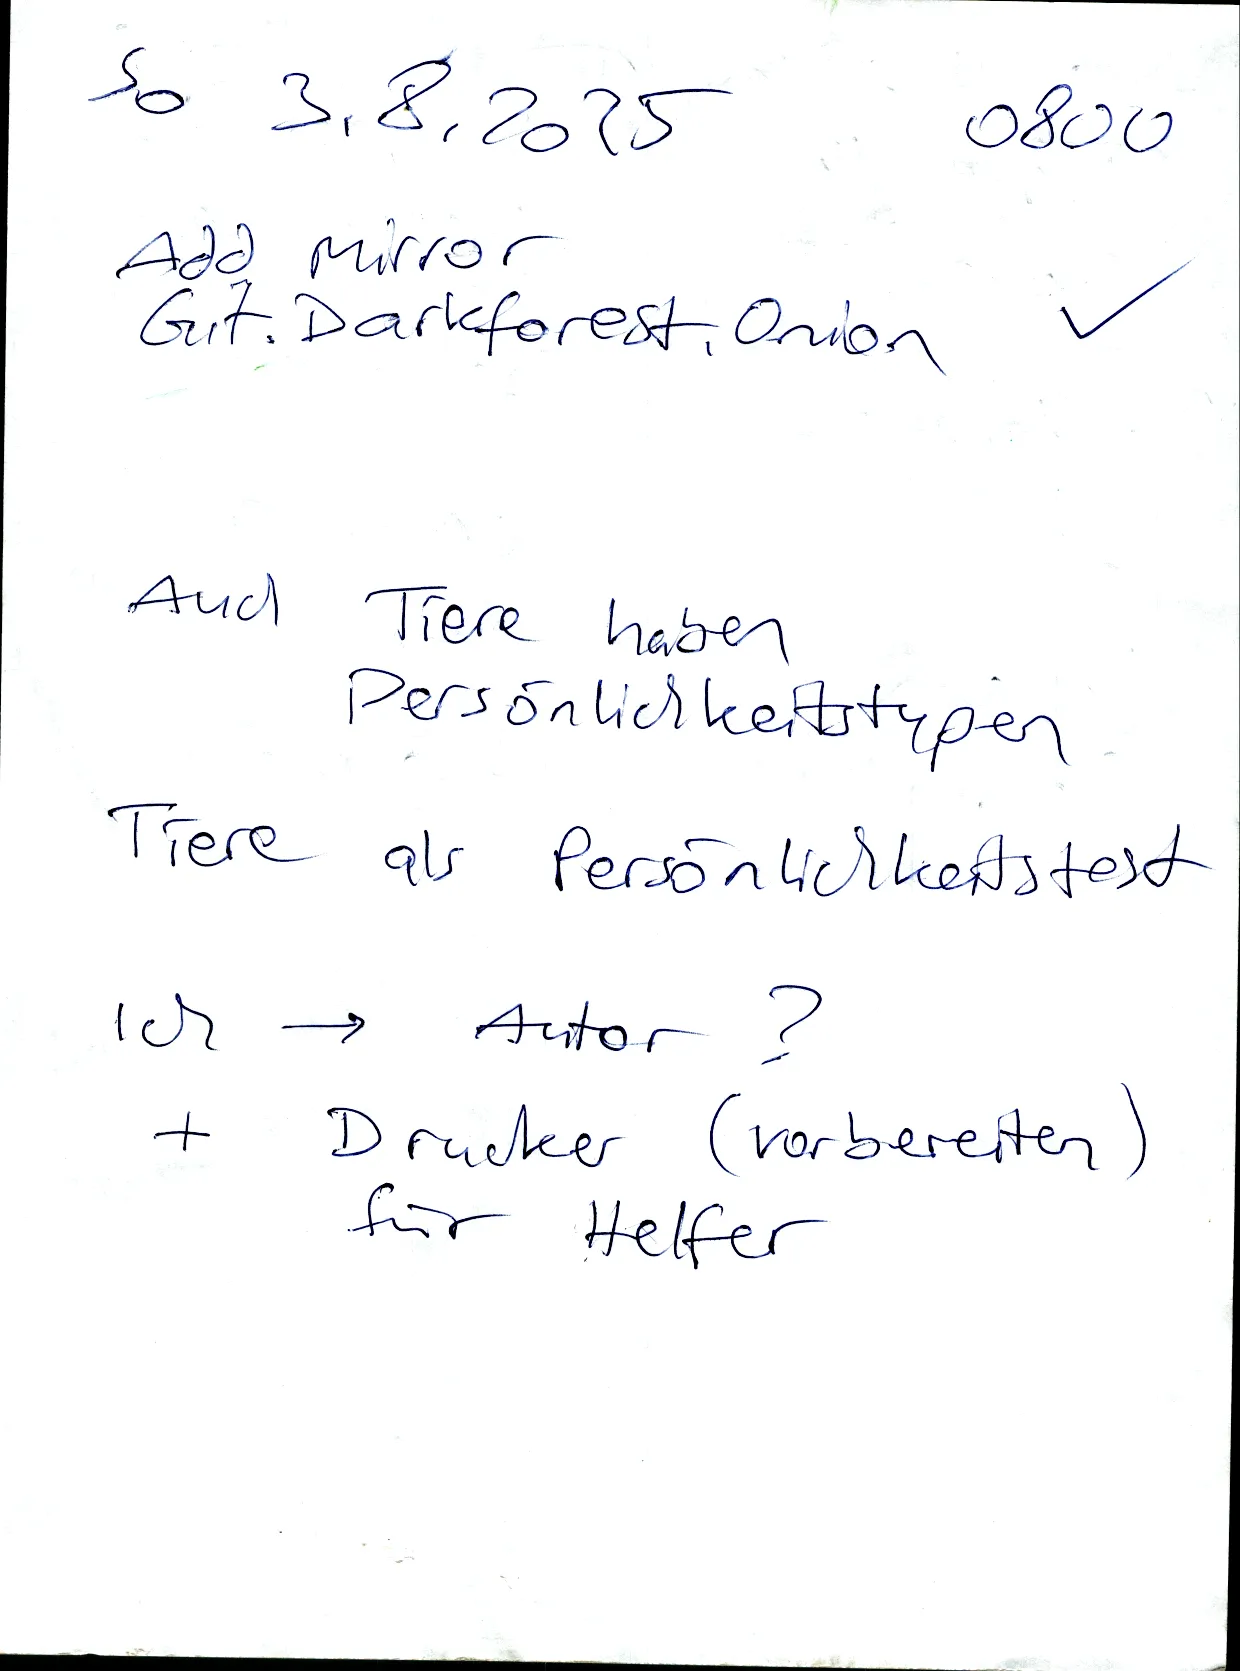 So 3.8.2025 0800
Add Mirror
Git.Darkforest.Onion ✓
Auch Tiere haben
Persönlichkeitstypen
Tiere als Persönlichkeitstest
Ich → Autor ?
+ Drucker (vorbereiten)
für Helfer